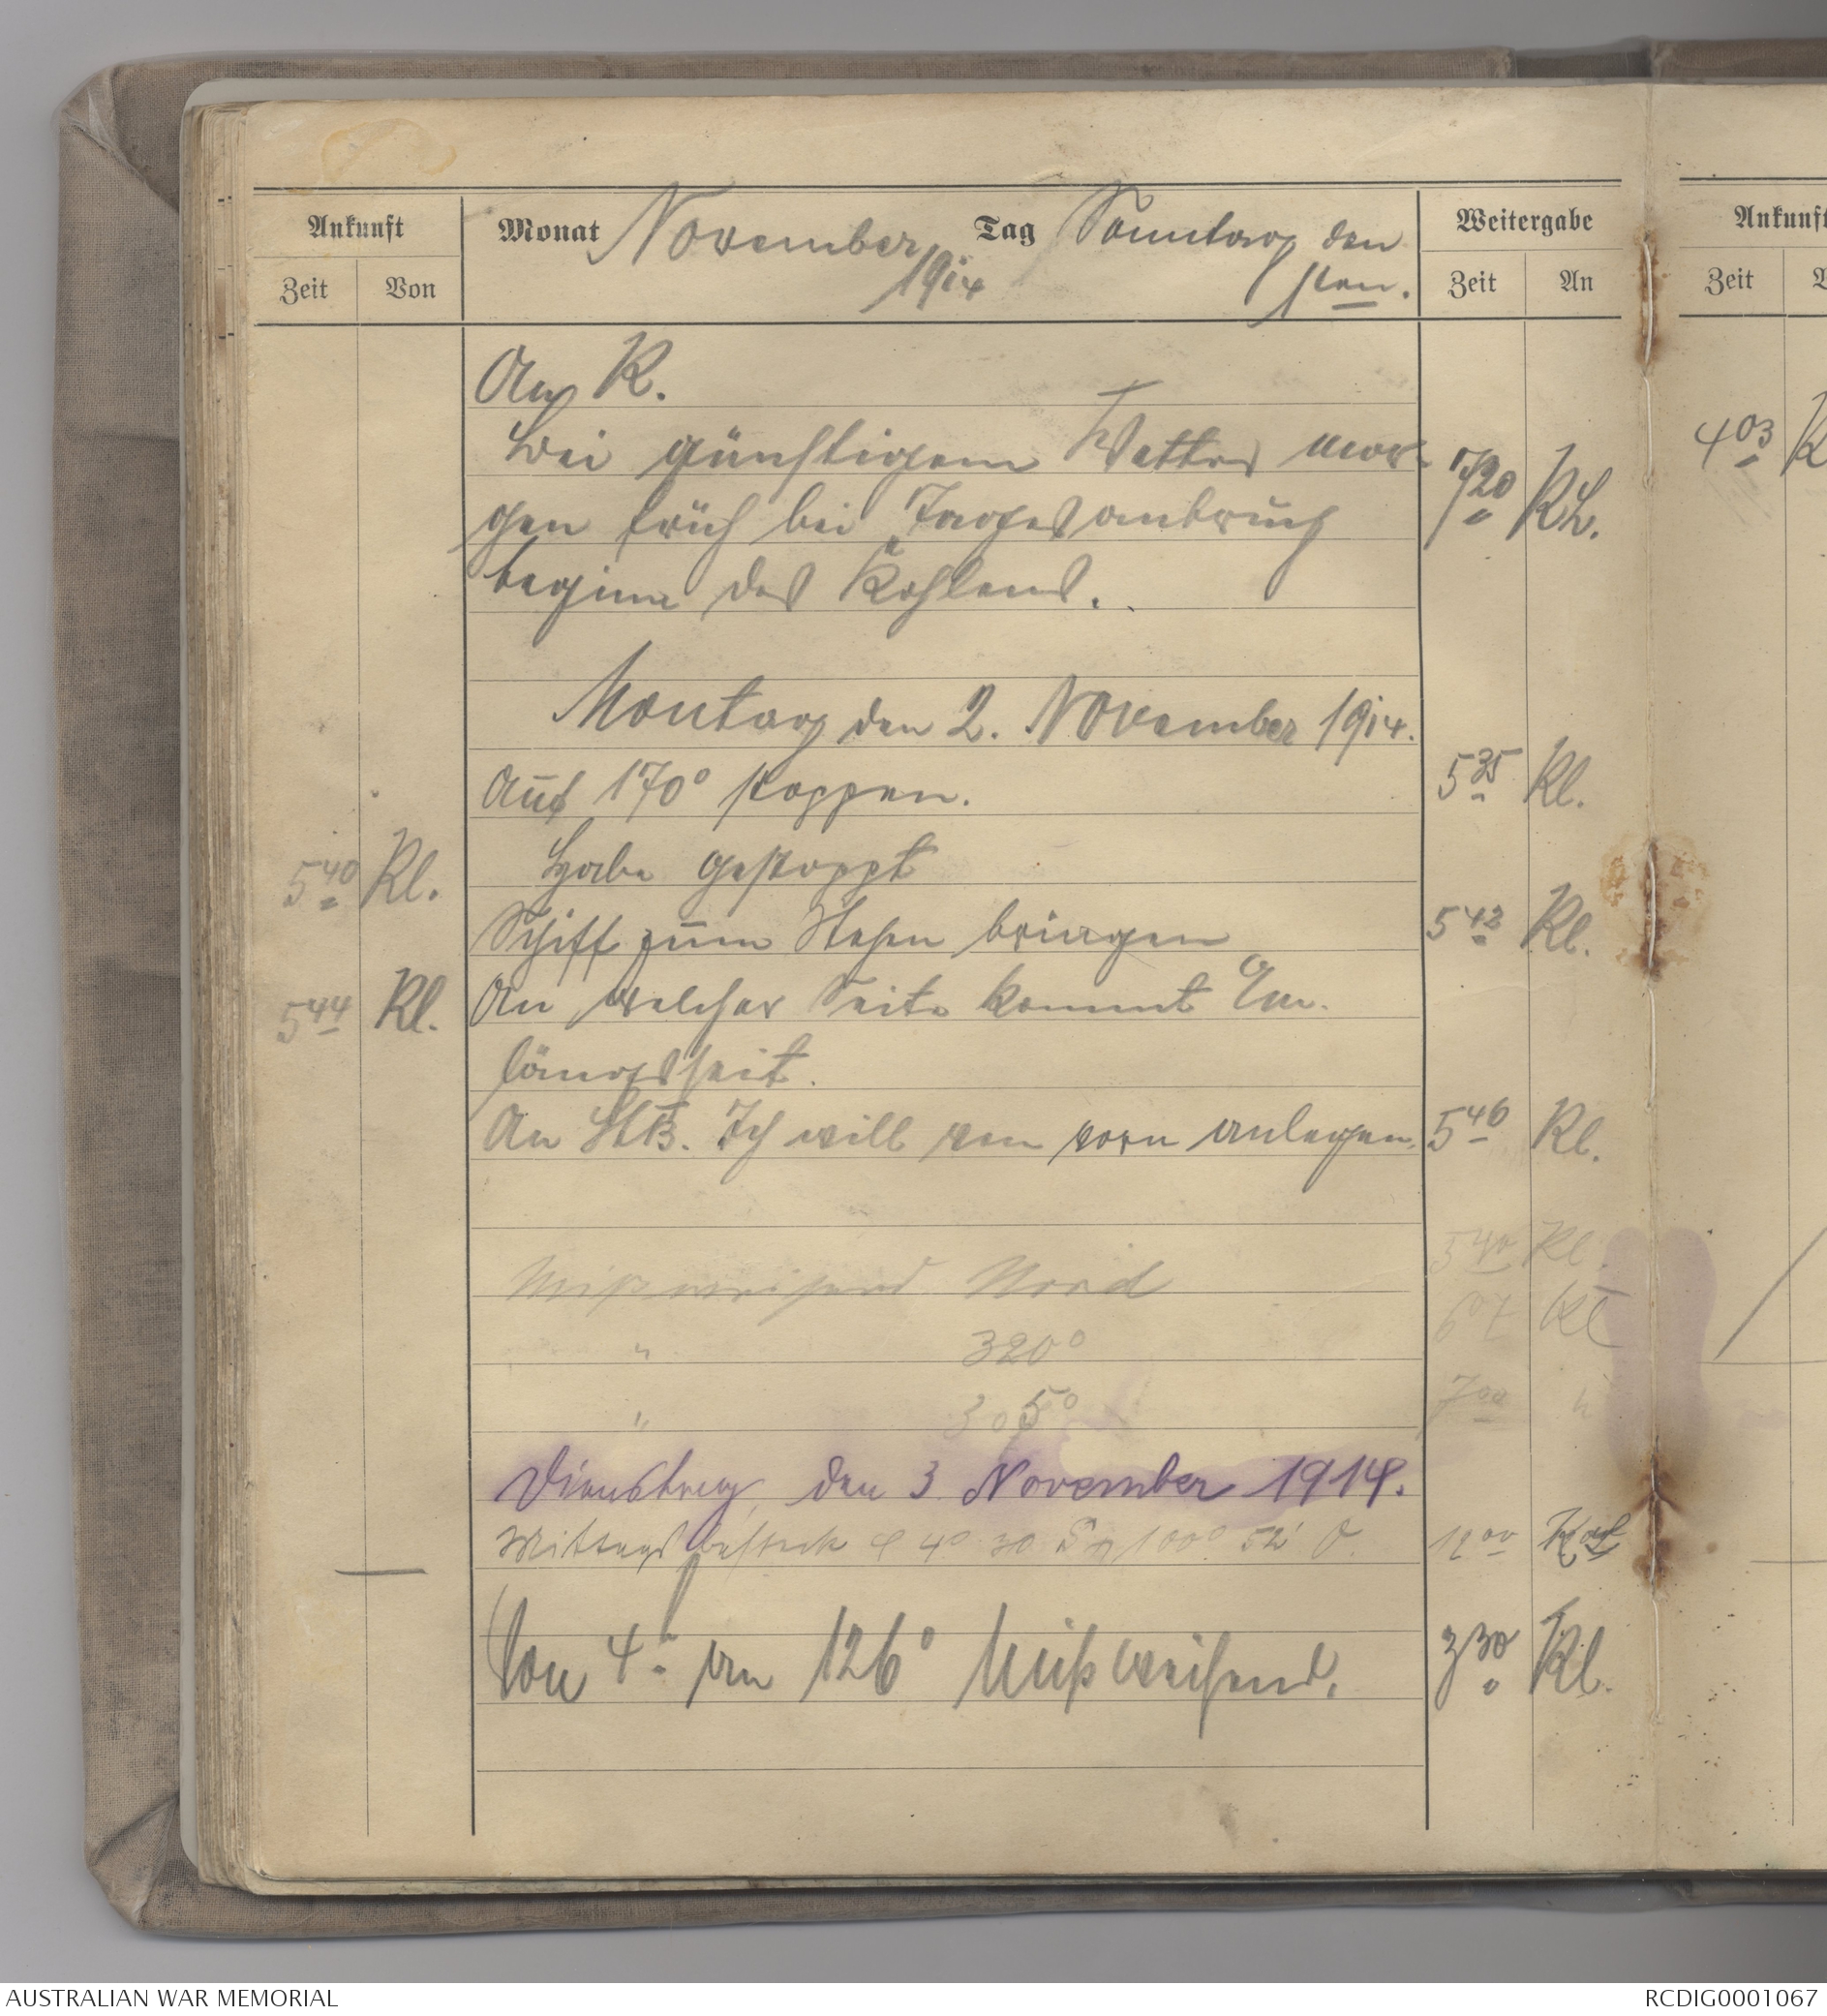 Ankunft Monat November Tag Sonntag den Weitergabe Ankunft
Zeit Von 1914 1ten. Zeit An Zeit
An K.
Bei günstigem Wetter mor- 7 20 Kl. 4 03 K
gen früh bei Tagesanbruch
beginn des Kohlens.
Montag den 2. November 1914.
Auf 170° stoppen. 5 35 Kl.
5 40 Kl. Habe gestoppt
Schiff zum Stehen bringen 5 42 Kl.
5 44 Kl. An welcher Seite kommt Em.
längsseit.
An StB. Ich will von vorn anlegen. 5 46 Kl.
5 40 Kl.
Mißweisend Nord
6 07 Kl
" 320°
" 305° 7 00 "
Dienstag, den 3. November 1914.
Mittagsbesteck φ 4° 30 S 100° 52' O. 12 00
Von 4 an 126° Mißweisend. 3 30 Kl.
AUSTRALIAN WAR MEMORIAL RCDIG0001067